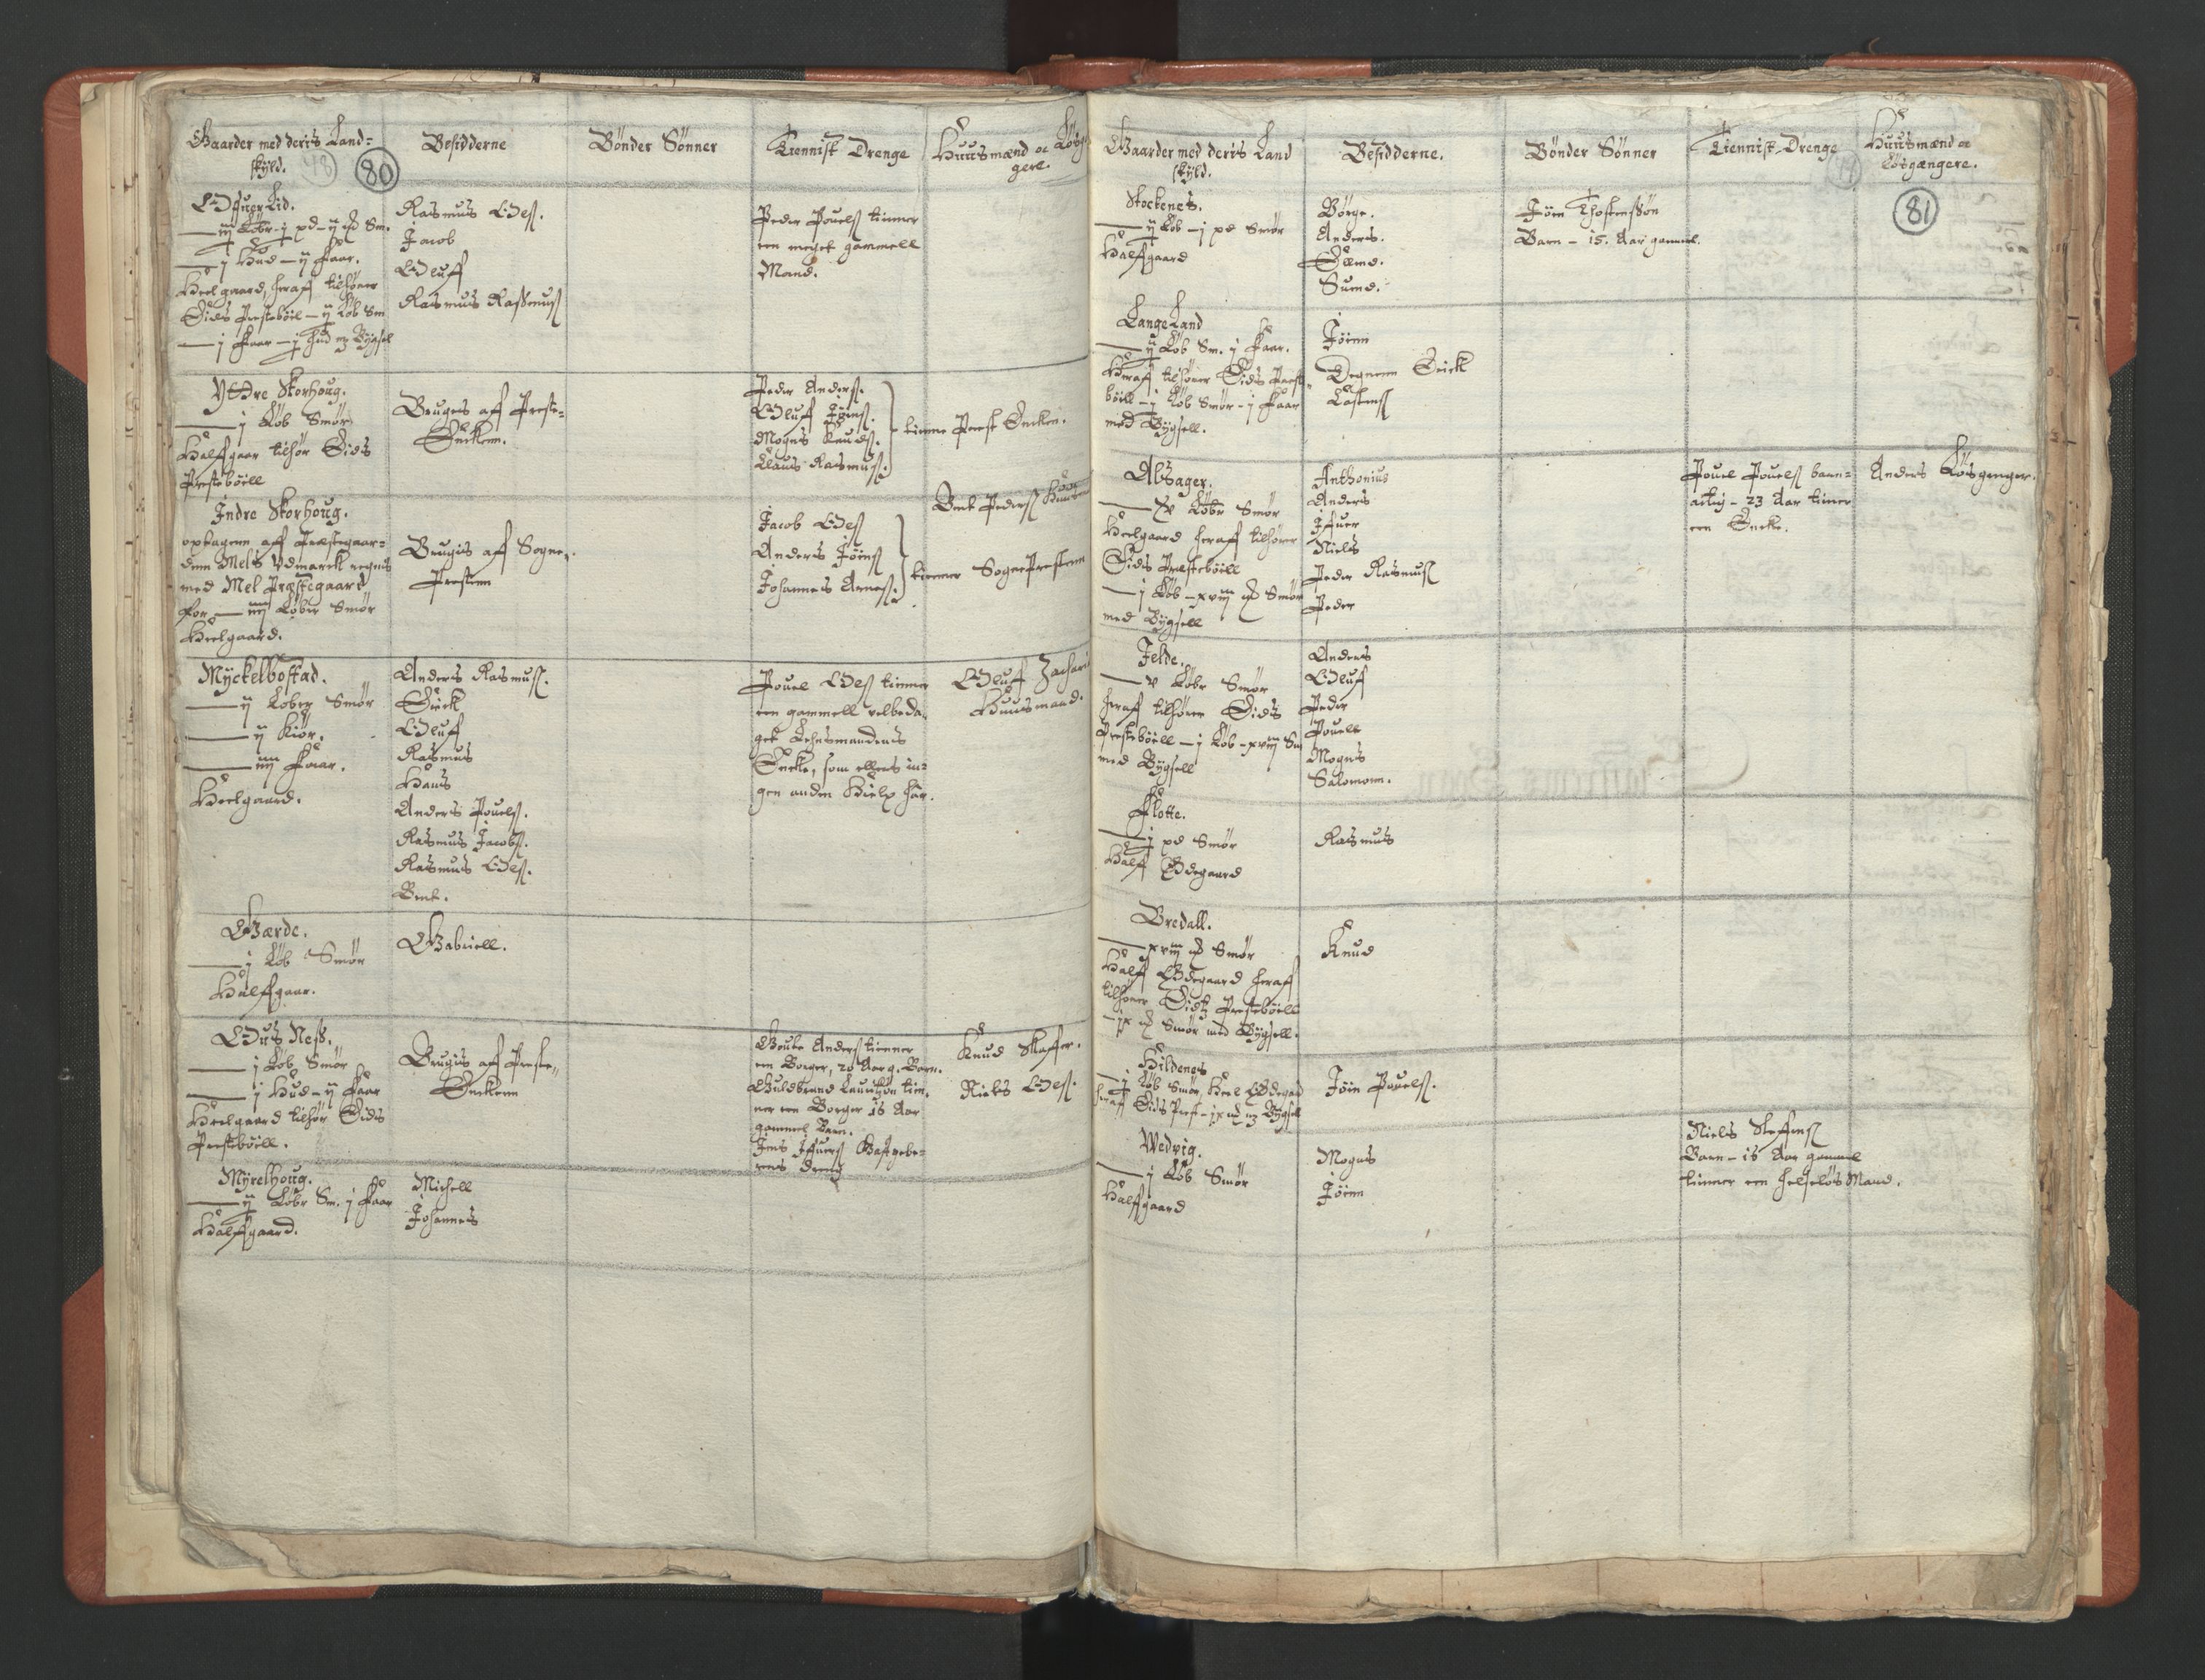 Gaarder med deris Land=
skyld.
48
80
Besidderne
Bønder Sønner
Tiennist Drenge
Huusmænd oc Løsgen
gere.
Offuer Lid.
iij Løbr - j pd - ij ℔ Sm.
j Hud - ij Faar.
Heelgaard, heraff tilhører
Eids Prestebôil - ij Løb Sm
j Faar - j hud m3 Bygsel
Rasmus Olsſ.
Jacob
Oluff
Rasmus Rassmusſ
Peder Pouelsſ tienner
een meget gammell
Mand.
Yttre Skorhoug.
j Løb Smør
Halfgaar tilhør Eids
Prestebôill
Brugis af Preste=
Enckenn.
Peder Andersſ.
Oluff Jôensſ.
Mogns Knudsſ.
Claus Rasmusſ.
tienne Prest Encken.
Indre Skorhoug.
optagenn aff Præstegaar=
denn Mels Vdmarck regnis
med Mel Præstegaard
for iiij Løber Smør
Heelgaard.
Brugis af Sogne=
Prestenn
Jacob Olsſ
Anders Jôensſ
Johannes Arnesſ.
tienner SognePrestenn
Bent Pedersſ Huusm
Myckelbostad.
ij Løber Smør
ij Kiør.
iiij Faar.
Heelgaard.
Anders Rasmusſ.
Erick
Oluff
Rasmus
Hans
Anders Pouelsſ.
Rasmus Jacobsſ.
Rasmus Olsſ.
Bent.
Pouel Olsſ tienner
een gammell velbeda=
get Lehnsmandens
Encke, som ellers in=
gen anden Hielp har.
Oluff Zachari
Huusmand.
Gærde.
j Løb Smør
Halfgaar.
Gabriell.
Ous Ness.
j Løb Smør
j Hud - ij Faar
Heelgaard tilhør Eids
Prestebôill.
Brugis af Preste=
Enckenn
Goute Andersſ tienner
een Borger, 20 Aar g. Barn.
Guldbrand Lauritzøn tien,
ner een Borger 18 Aar
gammel Barn.
Jens Iffuersſ Gastgebe=
rens dreng
Knud Skaffer.
Niels Olsſ.
Myrelhoug.
ij Løbr Sm. j Faar
Halfgaard.
Michell
Johannes
Gaarder med deris Land
skyld.
Besidderne.
Bønder Sønner
Tiennist-Drenge
Huusmænd oc
Løsgængere.
81
Stockenes.
ij Løb - j pd Smør
Halfgaard
Børge.
Anders.
Ellend.
Suend.
Jôen Thostenssøn
Barn - 15. Aar gammel.
Lange Land
ij Løb Sm. j Faar.
Heraf tilhører Eids Preste=
bôill - j Løb Smør - j Faar
med Bygsell.
Jôenn
Degnenn Erick
Lastensſ
Absager.
Løbr Smør
Heelgaard heraf tilhører
Eids Præstebôill
j Løb - xviij ℔ Smør
med Bygsell
Anthonius
Anders
Iffuer
Niels
Peder Rasmusſ
Peder
Pouel Pouelsſ barn=
actig - 23 Aar tiener
een Encke.
Anders Løsgenger.
Jelde.
v Løbr Smør
heraf tilhører Eids
Prestebôell - j Løb - xviij Sm
med Bygsell
Anders
Oluf
Peder
Pouell
Mogns
Salomonn.
Flotte.
j pd Smør
Half Ødegaard
Rasmus
Bredall.
xviij ℔ Smør
Half Ødegaard heraf
tilhører Eidz Prestebôell
ix ℔ Smør med Bygsell.
Knud
Hildenes
j Løb Smør, Heel Ødegard
heraff Eids Prest - ix ℔ m3 Bygsell
Jôen Pouelsſ.
Wedvig.
j Løb Smør
Halfgaard
Mogns
Jôenn
Niels Steffensſ
Barn - 18 Aar gammel
tienner een helseløs Mand.